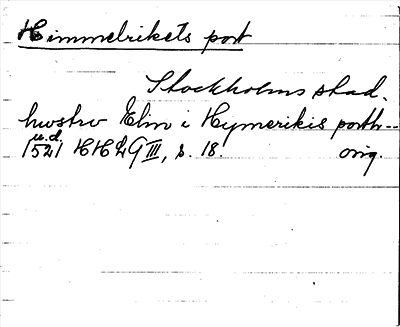 Himmelrikets port
Stockholms stad.
hwstrv Elin i Hymerikis porth --
u.d.
1521 HHLG III, s. 18. orig.